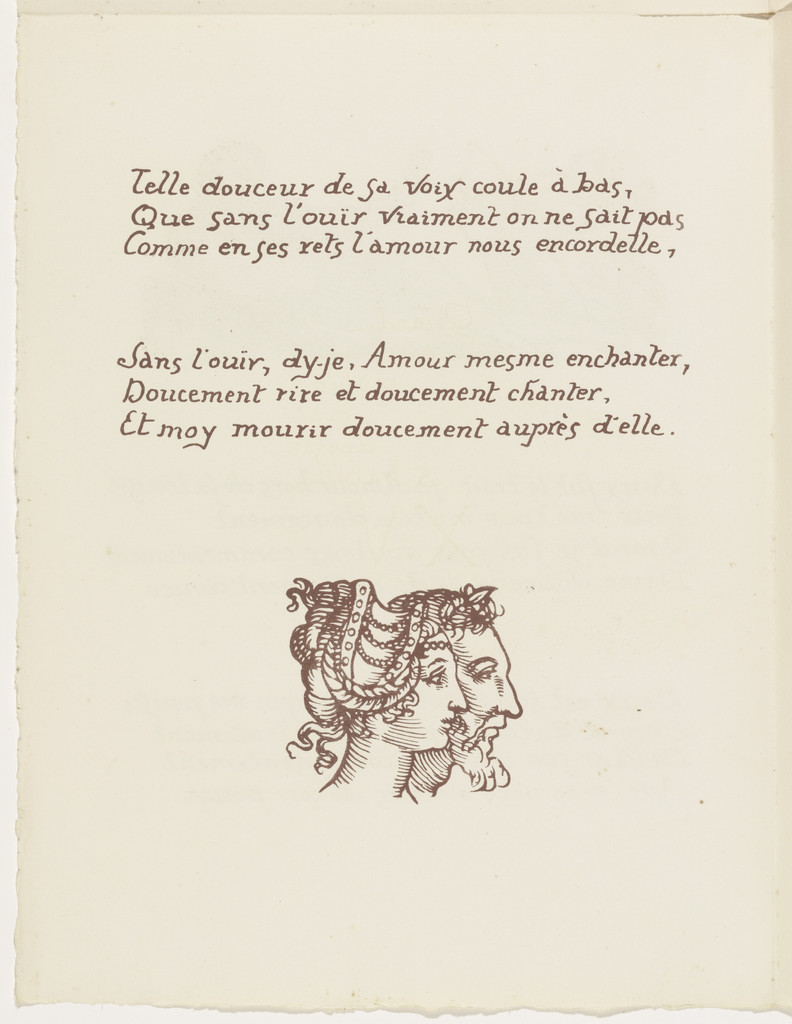 Telle douceur de sa voix coule à bas,
Que sans l'ouïr vraiment on ne sait pas
Comme en ses rets l'amour nous encordelle,
Sans l'ouïr, dy-je, Amour mesme enchanter,
Doucement rire et doucement chanter,
Et moy mourir doucement auprès d'elle.